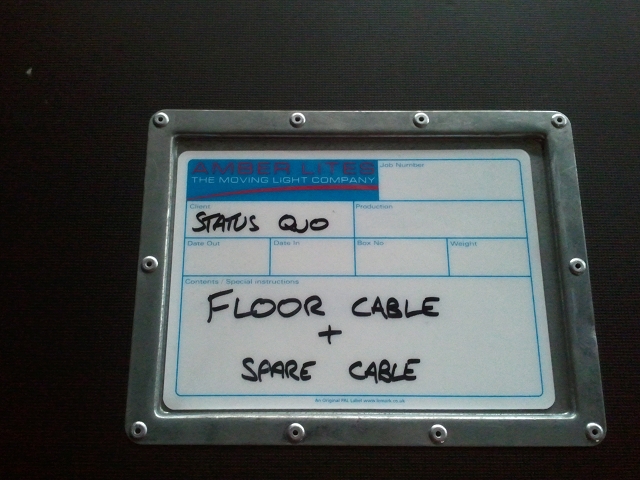 AMBER LITES
THE MOVING LIGHT COMPANY
Job Number
Client
Production
STATUS QUO
Date Out
Date In
Box No
Weight
Contents / Special instructions
FLOOR CABLE
+
SPARE CABLE
An Original PAL Label